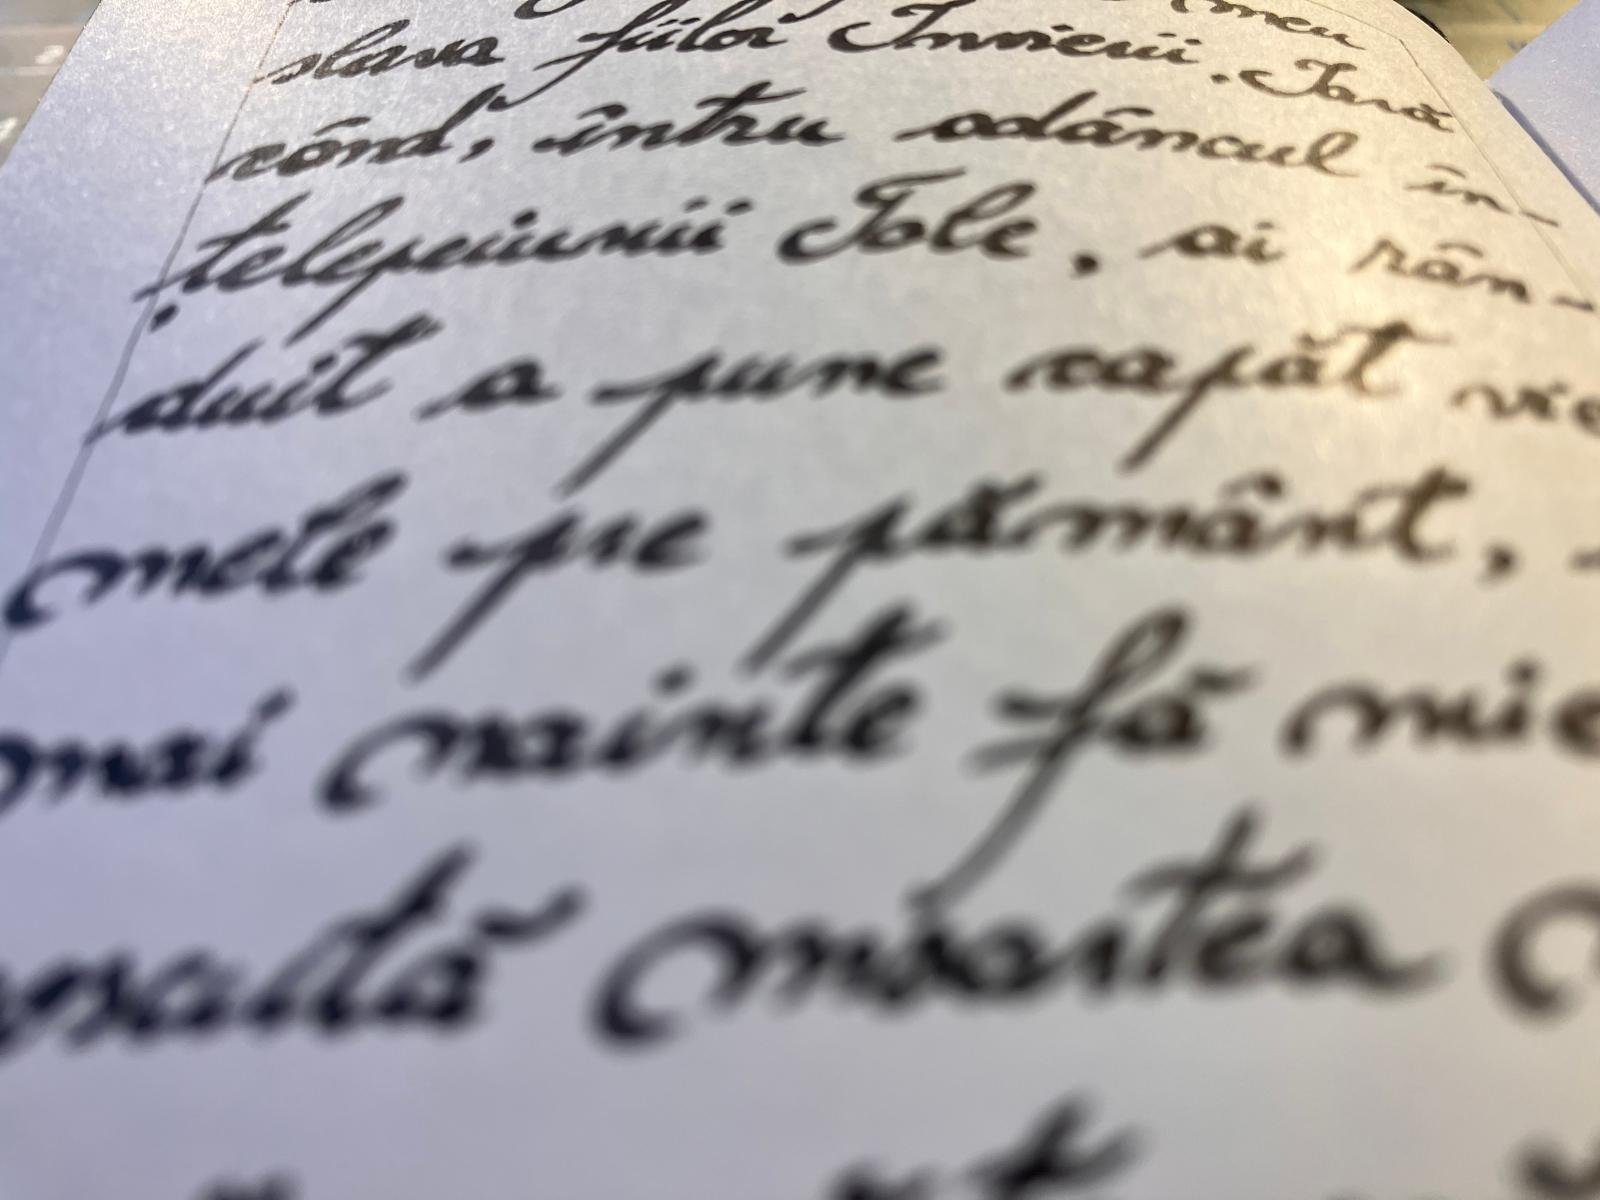 meu
slava fiilor Învierii. Iară
când, întru adâncul în-
țelepciunii Tale, ai rân-
duit a pune capăt vie
mele pre pământ,
mai nainte fă mie
moartea